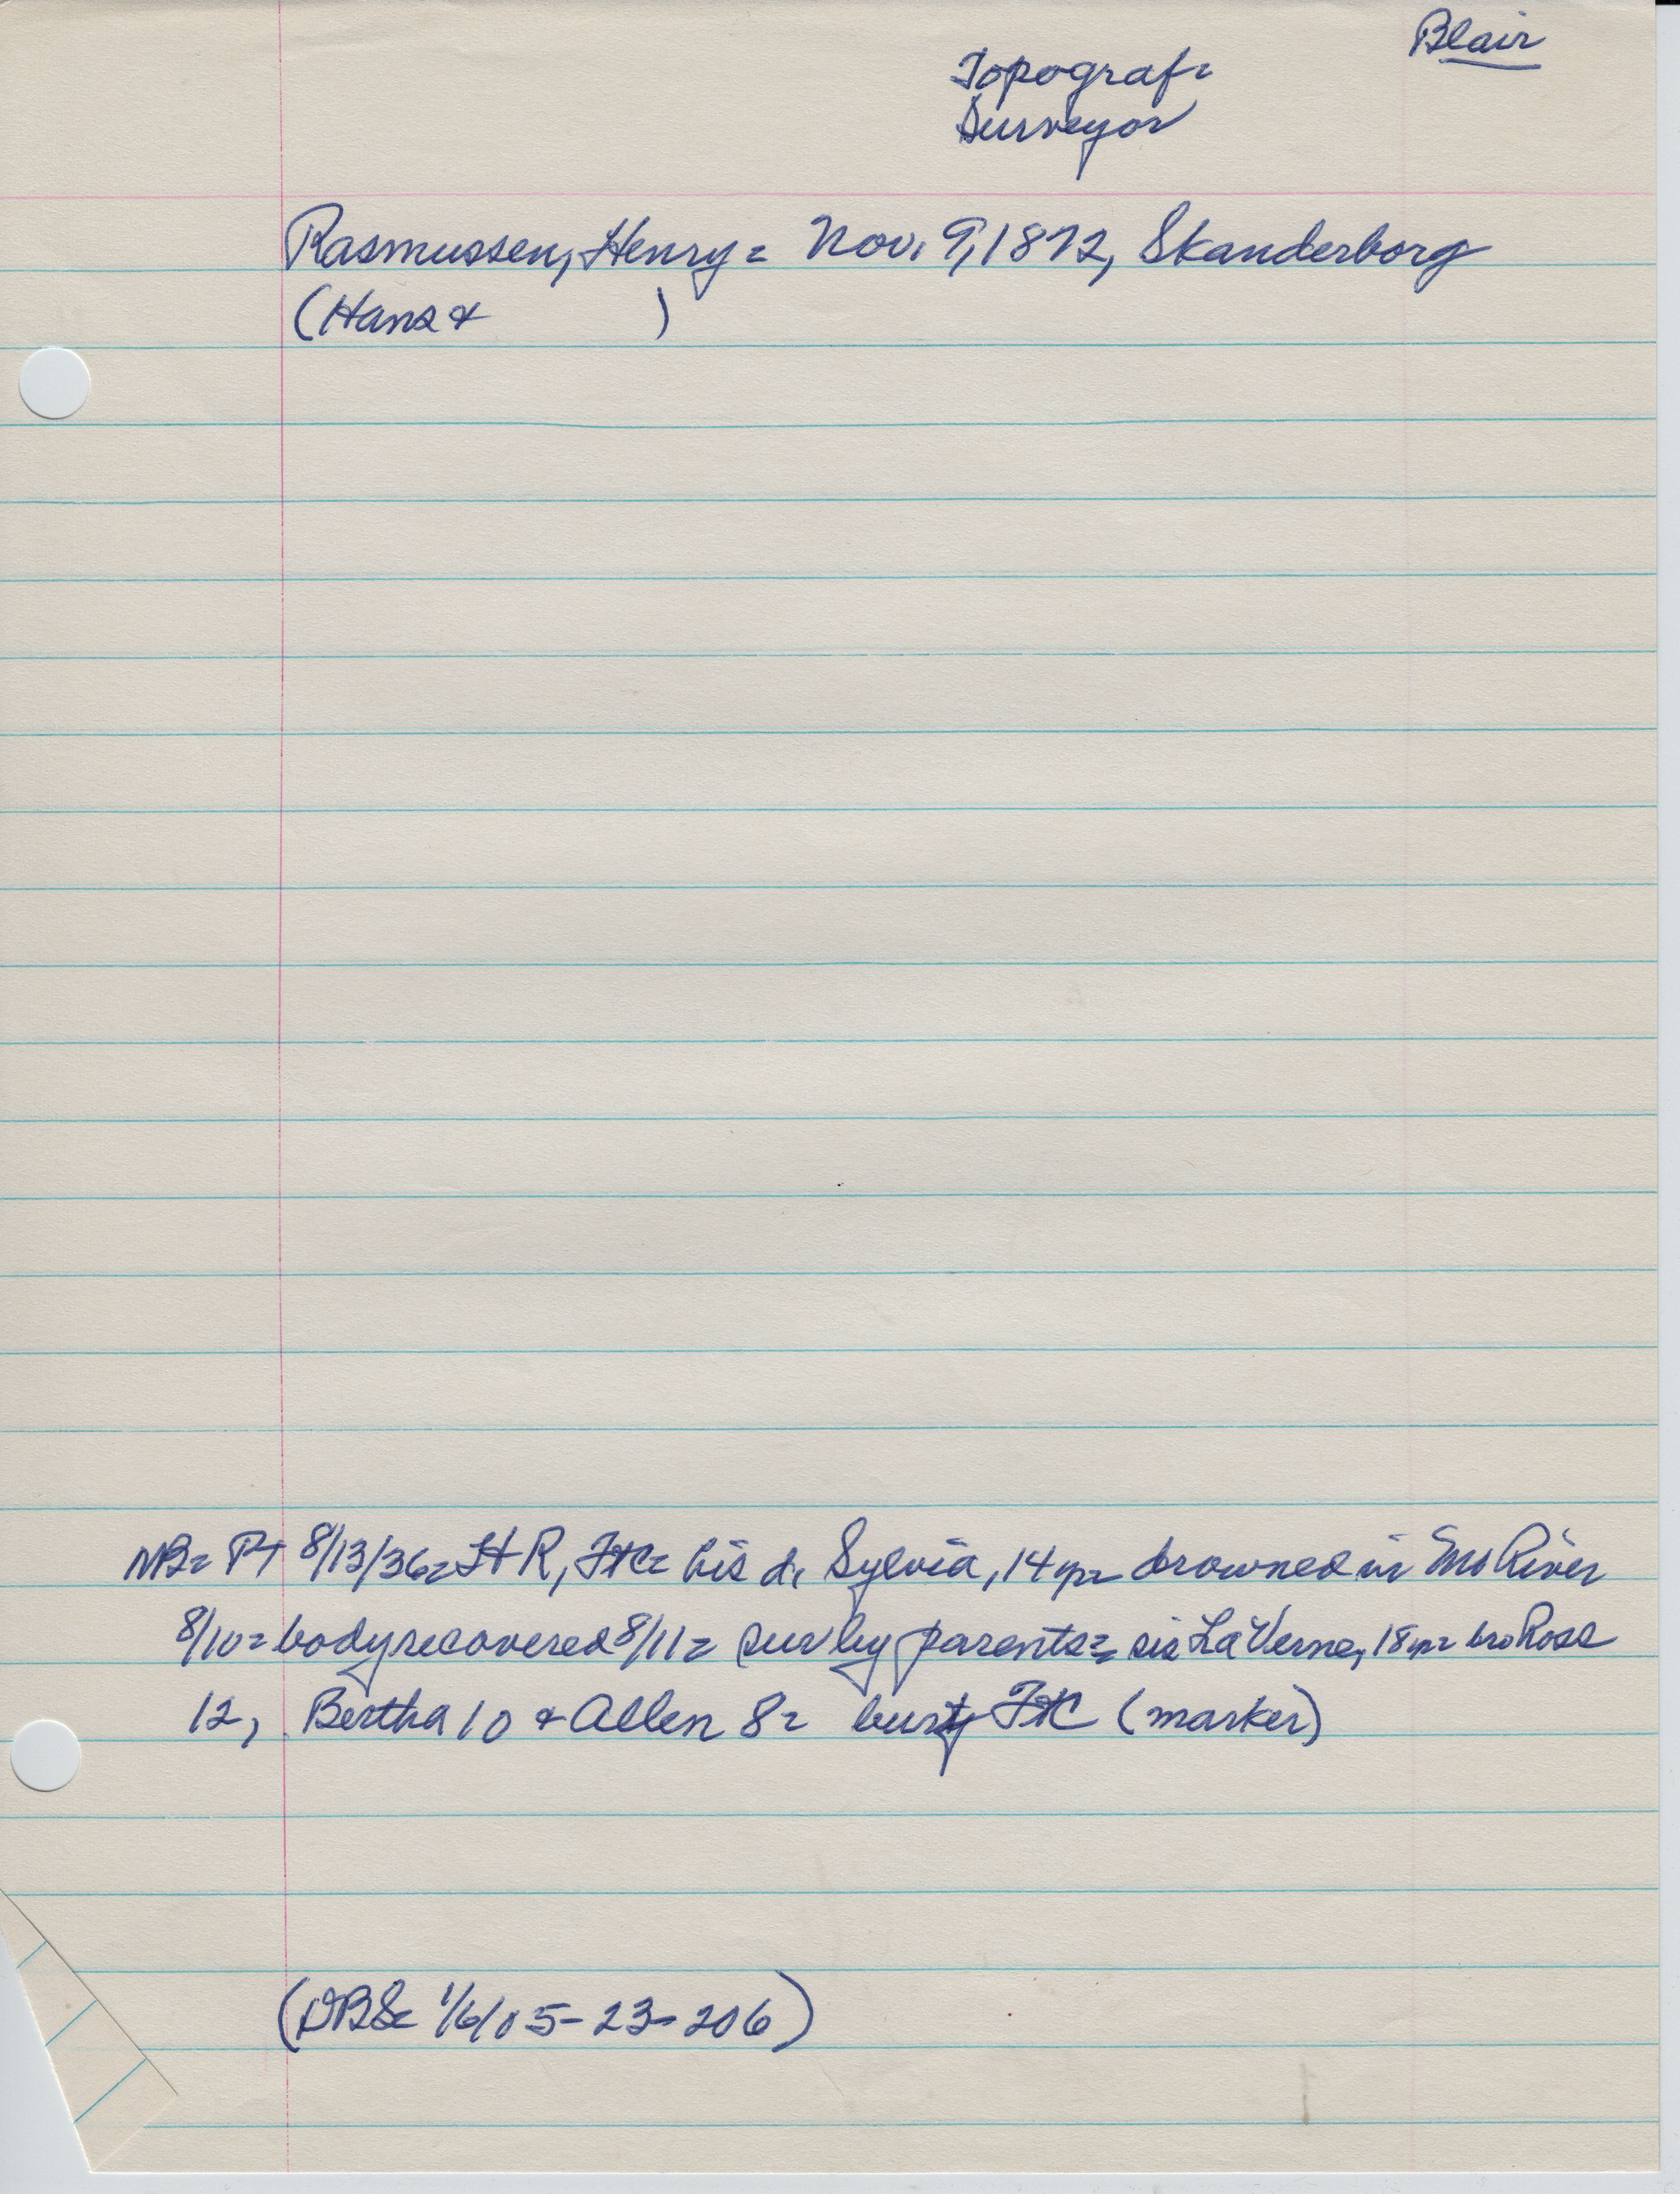 Blair
Topograf=
Surveyor
Rasmussen, Henry= Nov. 9, 1872, Skanderborg
(Hans & )
NB= PT 8/13/36= HR, FtC= his d. Sylvia, 14 yr= drowned in Mo River
8/10= body recovered 8/11= sur by parents= sis LaVerne, 18 yr= bro Ross
12, Bertha 10 & Allen 8= bury FtC (marker)
(DBSc 1/6/05-23-206)